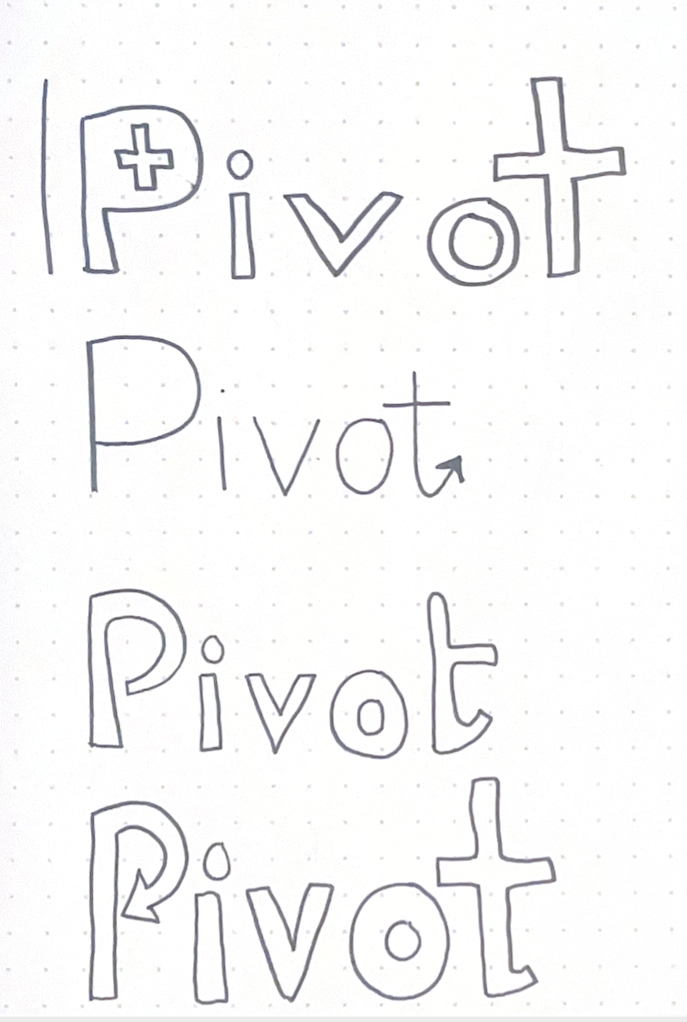 Pivot
Pivot
Pivot
Pivot